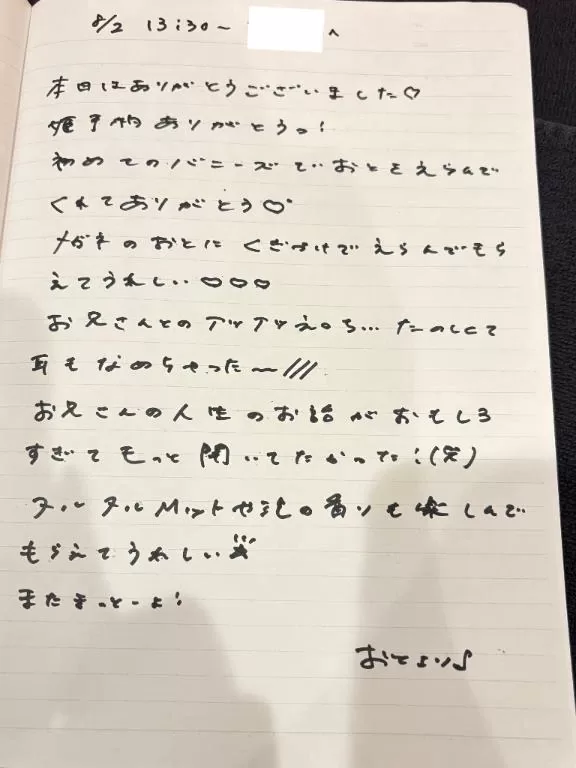 8/2 13:30~ へ
本日はありがとうございました♡
姫予約ありがとうっ!
初めてのバニーズでおとをえらんで
くれてありがとう♡
メガネのおとにくぎづけでえらんでもら
えてうれしい♡♡♡
お兄さんとのアツアツえっち...たのしくて
耳もなめちゃった〜///
お兄さんの人生のお話がおもしろ
すぎてもっと聞いてたかった!(笑)
ヌルヌルMットや泡の香りも楽しんで
もらえてうれしい
またきっとーよ!
おとより♪